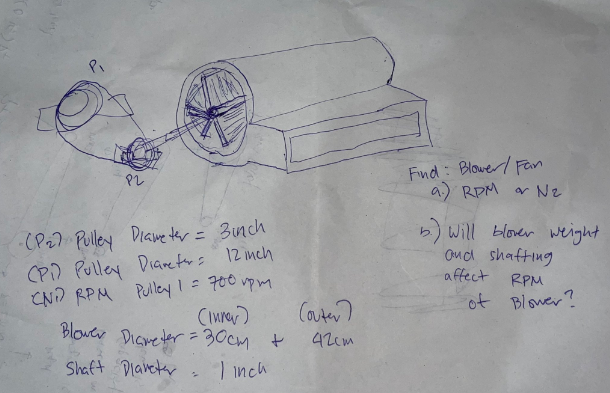 P1
P2
Find: Blower/Fan
a.) RPM or N2
(P2) Pulley Diameter = 3inch
(P1) Pulley Diameter = 12 inch
(N1) RPM Pulley 1 = 700 rpm
(inner) (outer)
Blower Diameter = 30cm + 42cm
Shaft Diameter = 1 inch
b.) Will blower weight
and shafting
affect RPM
of Blower?